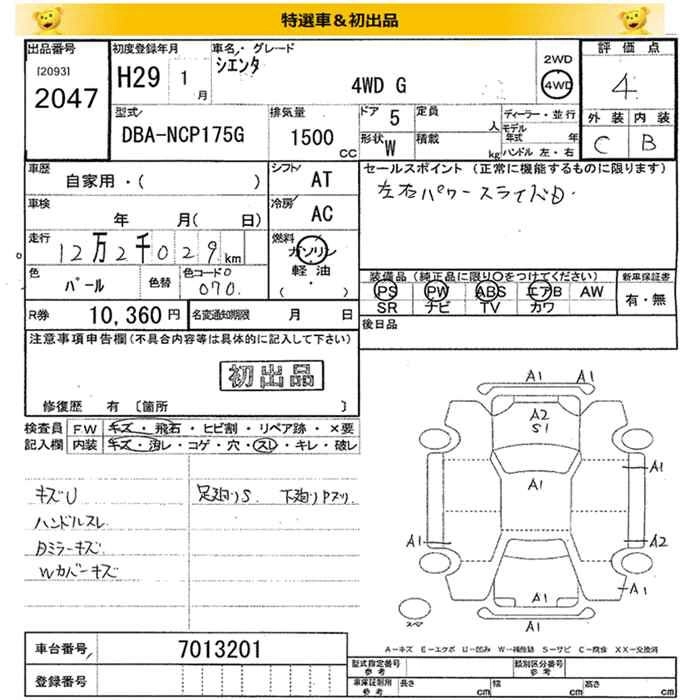 特選車＆初出品
出品番号 初度登録年月 車名・グレード 評価点
[2093] シエンタ 2WD
2047 H29 1月 4WD G 4WD 4
型式 排気量 ドア 5 定員 人 ディーラー・並行 外装 内装
DBA-NCP175G 1500 CC 形状 W 積載 kg モデル年式 年 C B
ハンドル 左・右
車歴 シフト セールスポイント (正常に機能するものに限ります)
自家用・( ) AT 左右パワースライドD.
車検 冷房
年 月( 日) AC
走行 燃料
12万2千029km ガソリン
色 色替 色コードNO 軽油 装備品(純正品に限り○をつけてください) 新車保証書
パール 070 (・) PS PW ABS エアB AW 有・無
R券 10,360円 名変通知期限 月 日 SR ナビ TV カワ
注意事項申告欄(不具合内容等は具体的に記入して下さい) 後日品
初出品
修復歴 有 〔箇所 〕
検査員 FW キズ・飛石・ヒビ割・リペア跡・×要
記入欄 内装 キズ・汚レ・コゲ・穴・スレ・キレ・破レ
キズU 足廻りS. 下廻りPヌリ.
ハンドルスレ
Dミラーキズ
Wカバーキズ
A1 A1
A2
S1
A1 A1
A1 A2
A1 A1
A1
スペア
A－キズ E－エクボ U－凹み W－補修跡 S－サビ C－腐食 XX－交換済
車台番号 7013201
登録番号
型式指定番号 参考 類別区分番号 参考
車庫証明用 参考 長さ cm 幅 cm 高さ cm